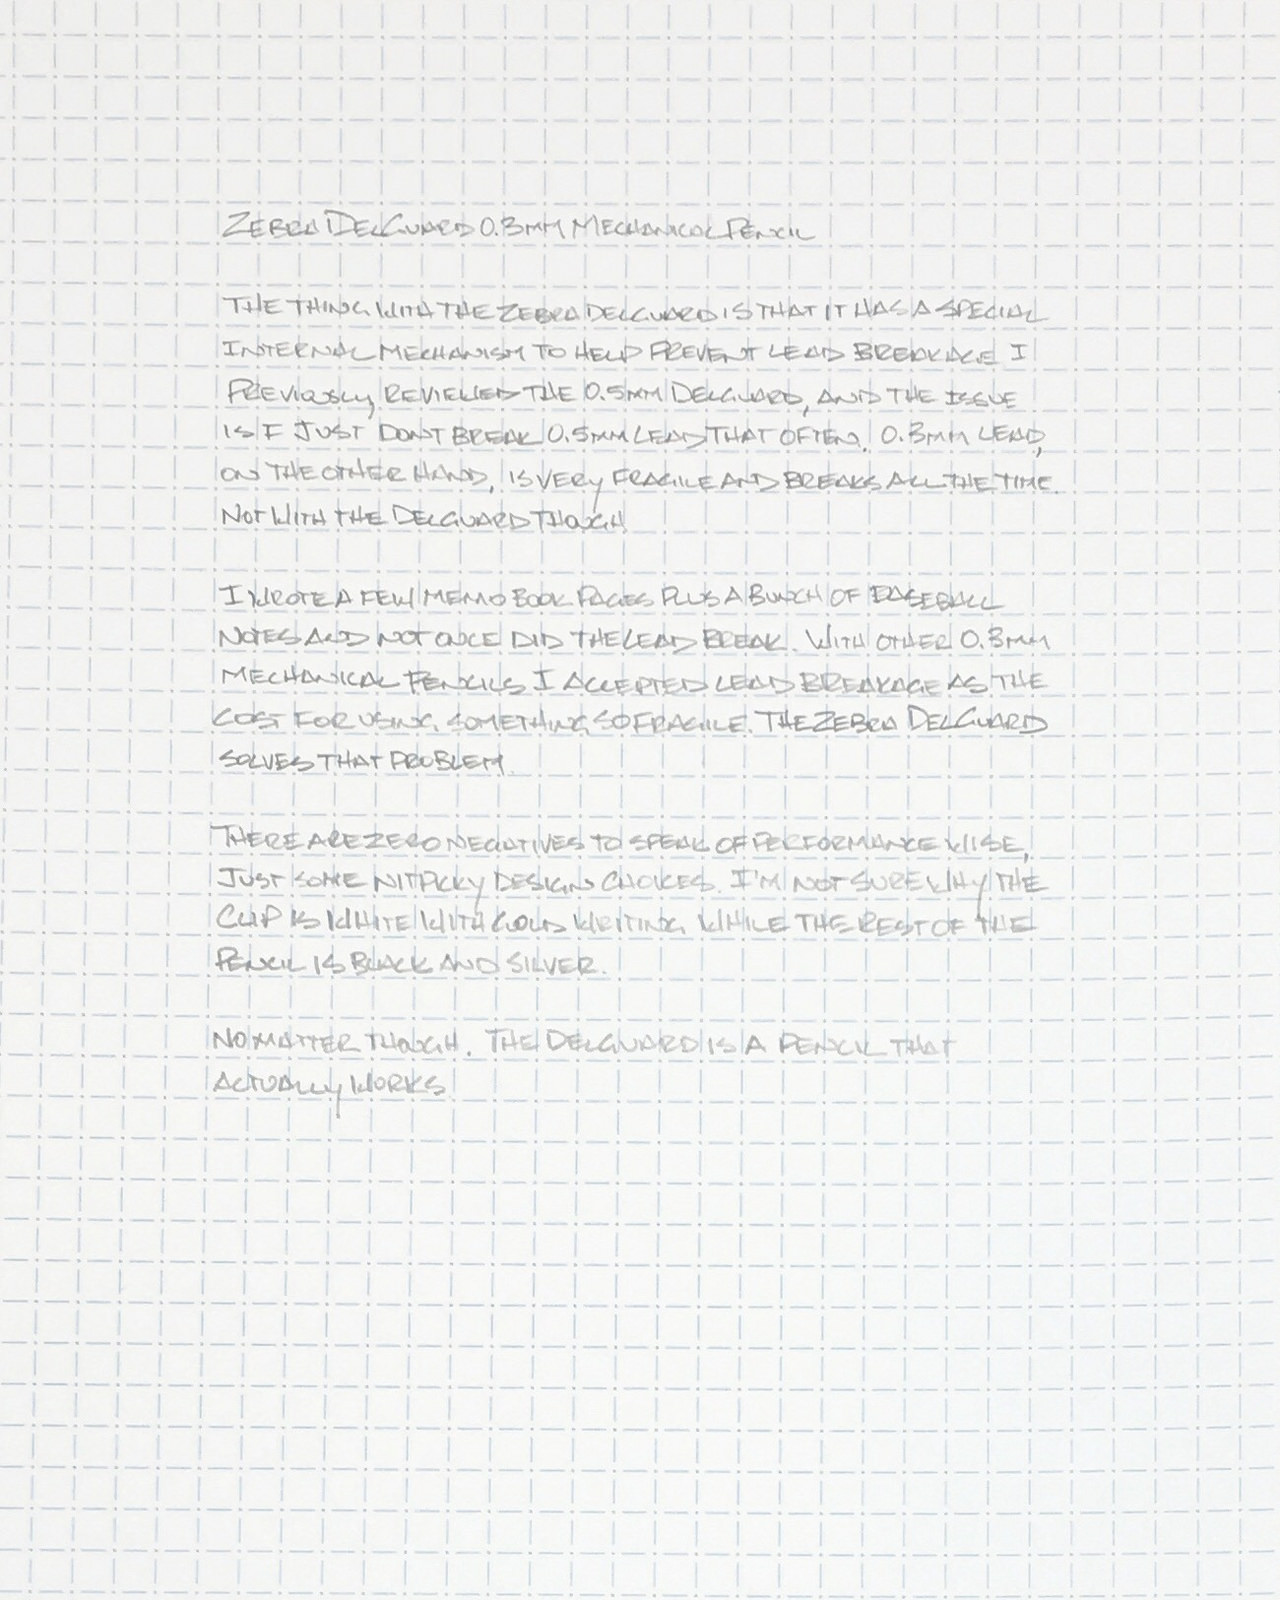 ZEBRA DELGUARD 0.3MM MECHANICAL PENCIL
THE THING WITH THE ZEBRA DELGUARD IS THAT IT HAS A SPECIAL
INTERNAL MECHANISM TO HELP PREVENT LEAD BREAKAGE. I
PREVIOUSLY REVIEWED THE 0.5MM DELGUARD, AND THE ISSUE
IS I JUST DON'T BREAK 0.5MM LEAD THAT OFTEN. 0.3MM LEAD,
ON THE OTHER HAND, IS VERY FRAGILE AND BREAKS ALL THE TIME.
NOT WITH THE DELGUARD THOUGH.
I WROTE A FEW MEMO BOOK PAGES PLUS A BUNCH OF BASEBALL
NOTES AND NOT ONCE DID THE LEAD BREAK. WITH OTHER 0.3MM
MECHANICAL PENCILS I ACCEPTED LEAD BREAKAGE AS THE
COST FOR USING SOMETHING SO FRAGILE. THE ZEBRA DELGUARD
SOLVES THAT PROBLEM.
THERE ARE ZERO NEGATIVES TO SPEAK OF PERFORMANCE WISE,
JUST SOME NITPICKY DESIGN CHOICES. I'M NOT SURE WHY THE
CLIP IS WHITE WITH GOLD WRITING WHILE THE REST OF THE
PENCIL IS BLACK AND SILVER.
NO MATTER THOUGH. THE DELGUARD IS A PENCIL THAT
ACTUALLY WORKS.